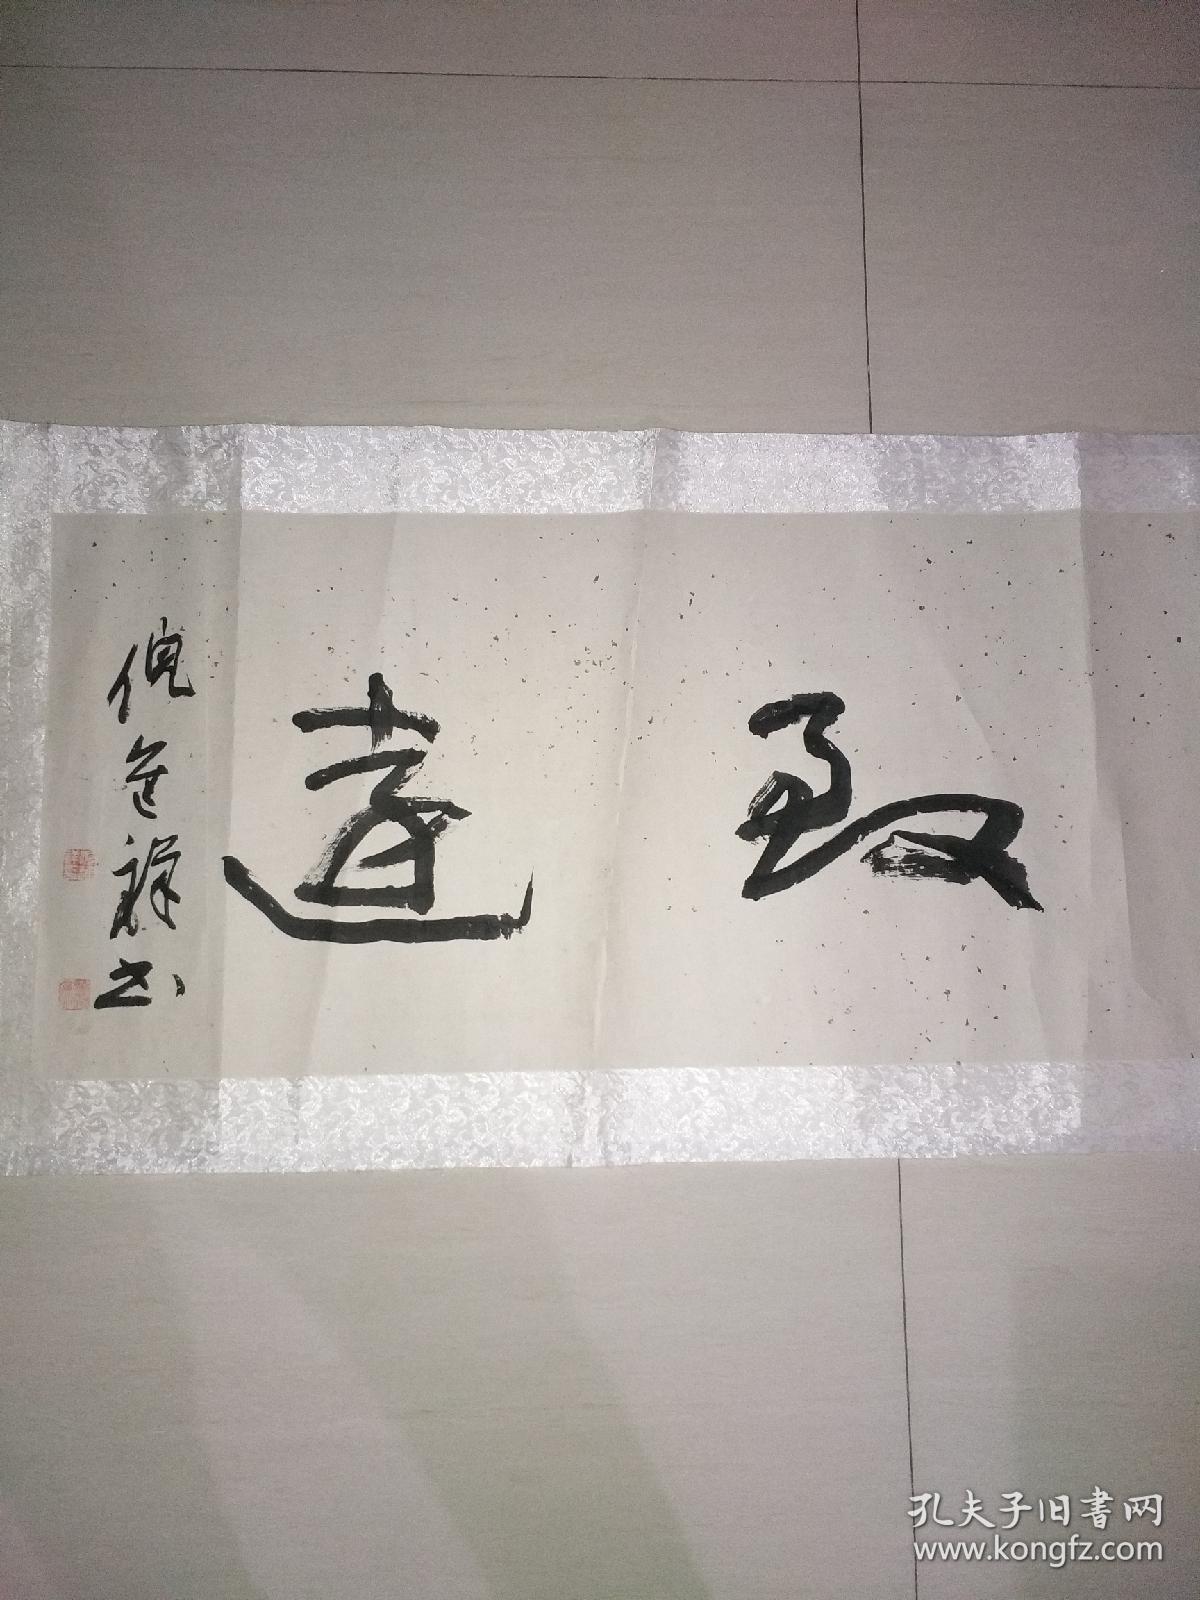 致遠
倪進祥书
孔夫子旧書网
www.kongfz.com